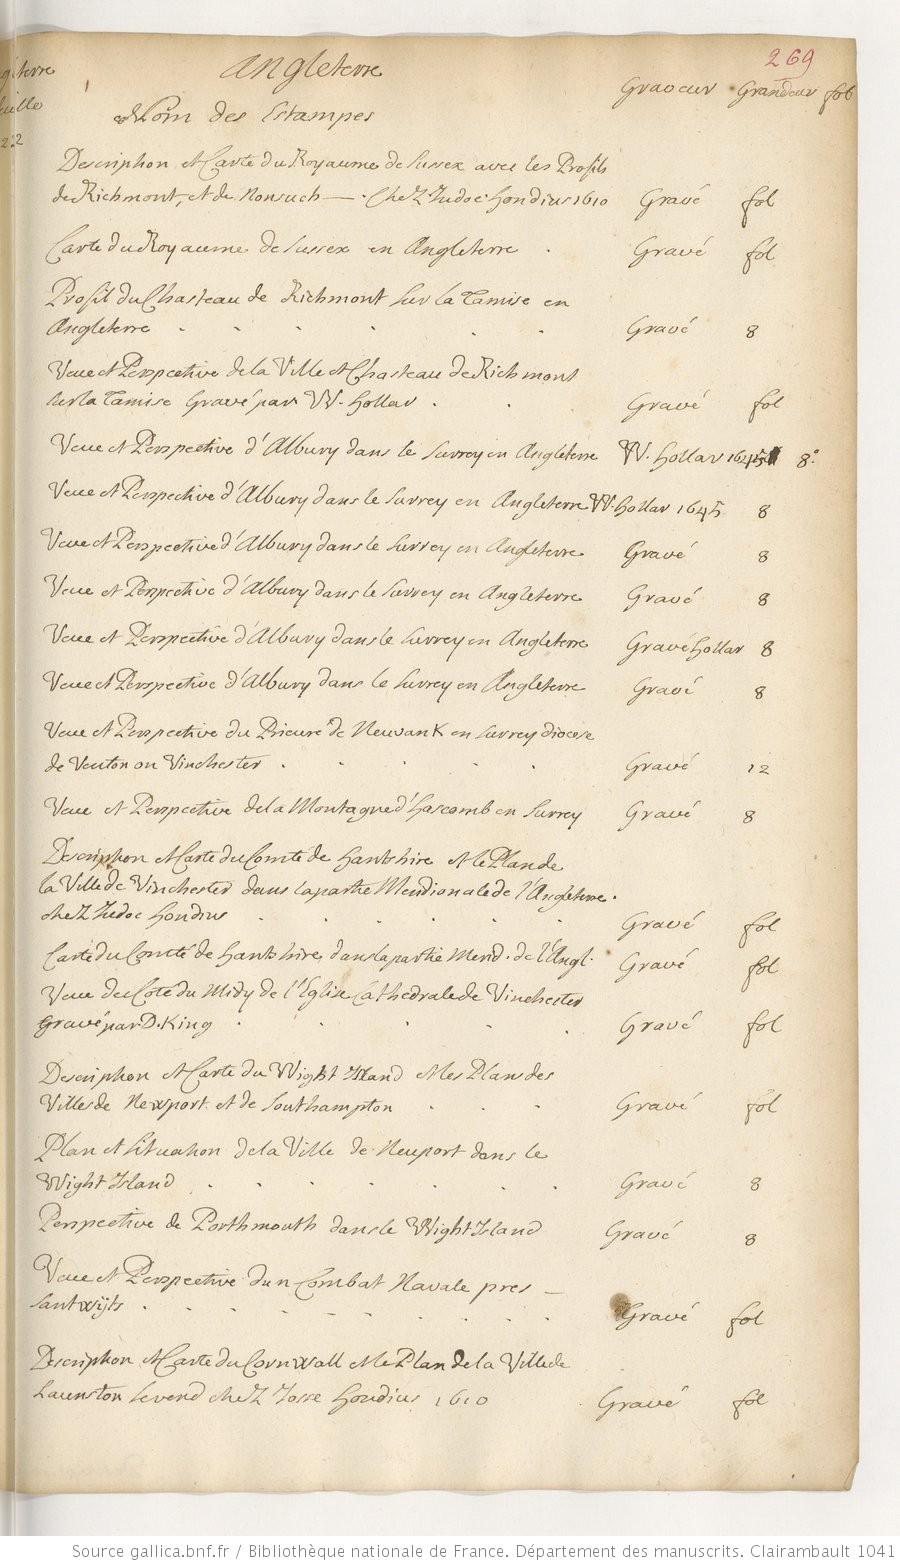 269
Angleterre
Graveur Grandeur fol
Nom des Estampes
Description et Carte du Royaume de Sussex avec les Profils
de Richmont, et de Nonsuch — . Chez Judoc Hondius 1610 Gravé fol
Carte du Royaume de Sussex en Angleterre . Gravé fol
Profil du Chasteau de Richmont sur la Tamise en
Angleterre . . . . . . Gravé 8
Veue et Perspective de la Ville et Chasteau de Richmont
sur la Tamise Gravé par W. Hollar . . Gravé fol
Veue et Perspective d'Albury dans le Surrey en Angleterre W. Hollar 1645 8°
Veue et Perspective d'Albury dans le Surrey en Angleterre W. Hollar 1645 8
Veue et Perspective d'Albury dans le Surrey en Angleterre Gravé 8
Veue et Perspective d'Albury dans le Surrey en Angleterre Gravé 8
Veue et Perspective d'Albury dans le Surrey en Angleterre Gravé Hollar 8
Veue et Perspective d'Albury dans le Surrey en Angleterre Gravé 8
Veue et Perspective du Prieuré de Neuvank en Surrey diocese
de Venton ou Vinchester . . . . . Gravé 12
Veue et Perspective de la Montagne d'Hascomb en Surrey Gravé 8
Description et Carte du Comté de Hantshire et le Plan de
la Ville de Vinchester dans la partie Meridionale de l'Angleterre.
chez Judoc Hondius . . . . . . Gravé fol
Carte du Comté de Hantshire, dans la partie Merid. de l'Angl. Gravé fol
Veue du Coté du Midy de l'Eglise Cathedrale de Vinchester
Gravé par D. King . . . . . Gravé fol
Description et Carte du Wight Island et les Plans des
Villes de Newport et de Southampton . . . Gravé fol
Plan et Situation de la Ville de Neuport dans le
Wight Island . . . . . . . Gravé 8
Perspective de Porthmouth dans le Wight Island Gravé 8
Veue et Perspective d'un Combat Navale pres —
Santwijts . . . . . . . . Gravé fol
Description et Carte du Cornwall et le Plan de la Ville de
Launston se vend chez Josse Hondius 1610 Gravé fol
Source gallica.bnf.fr / Bibliothèque nationale de France. Département des manuscrits. Clairambault 1041